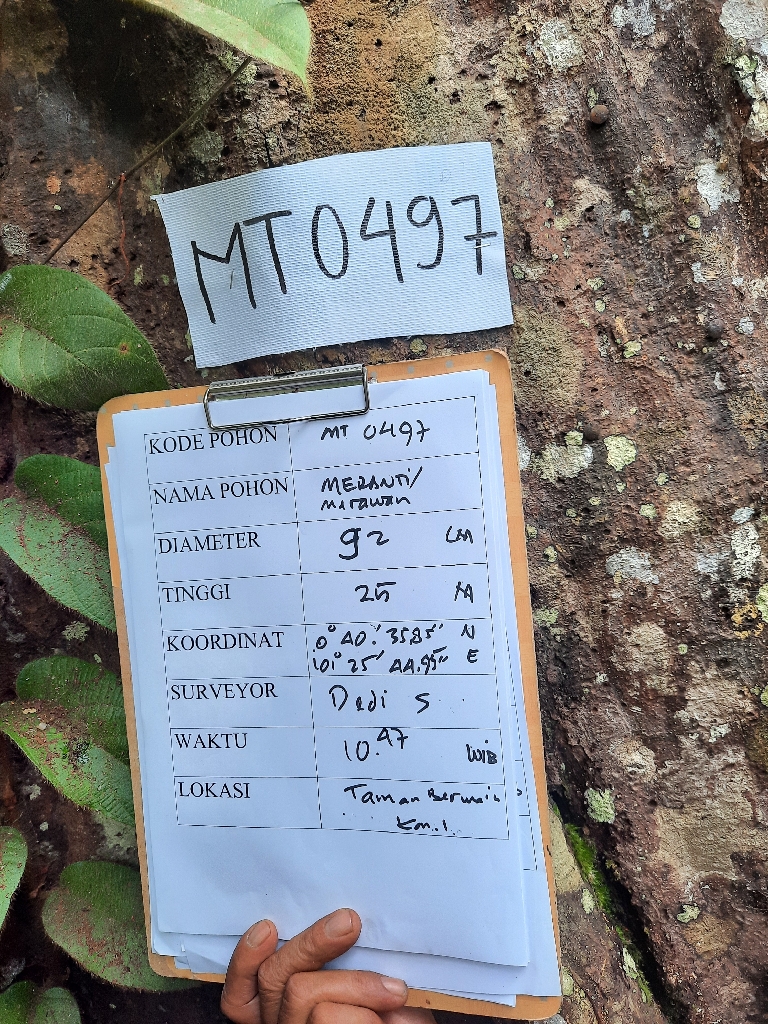 MT0497
KODE POHON MT 0497
NAMA POHON MERANTI/
Marawan
DIAMETER 92 CM
TINGGI 25 M
KOORDINAT 0° 40.' 35.85" N
101° 25' 44.95" E
SURVEYOR Dedi S
WAKTU 10.47 WIB
LOKASI Taman Bermain
Km.1.